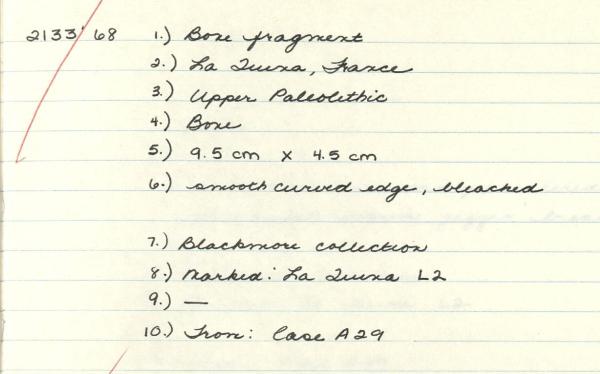 2133' 68 1.) Bone fragment
2.) La Quina, France
3.) Upper Paleolithic
4.) Bone
5.) 9.5 cm x 4.5 cm
6.) smooth curved edge, bleached
7.) Blackmore collection
8.) Marked: La Quina L2
9.) —
10.) From: Case A29